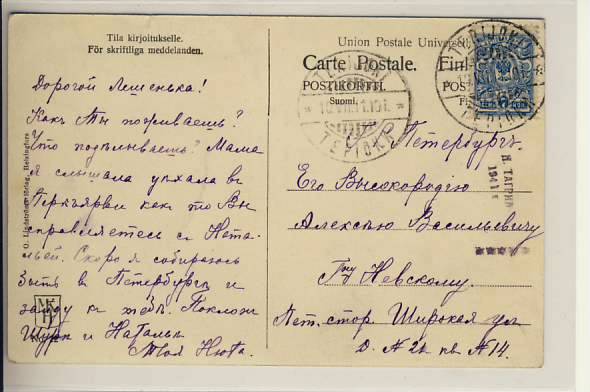 Tila kirjoitukselle.
För skriftliga meddelanden.
Дорогой Лешенька!
Какъ Ты поживаешь?
Что подѣлываешь? Мама
я слышала уѣхала въ
Перкъярви какъ то Вы
справляетесь съ Ната-
льей. Скоро я собираюсь
быть въ Петербургѣ и
зайду къ тебѣ. Поклонъ
Шурѣ и Натальѣ
Твоя Нюта.
Union Postale Universelle
Carte Postale.
POSTIKORTTI.
Suomi.
TERIJOKI
TERIOKI
TERIJOKI
TERIOKI
Петербургъ.
Его Высокородію
Алексѣю Васильевичу
Гну Невскому.
Пет. стор. Широкая ул
д. № 21 кв № 14.